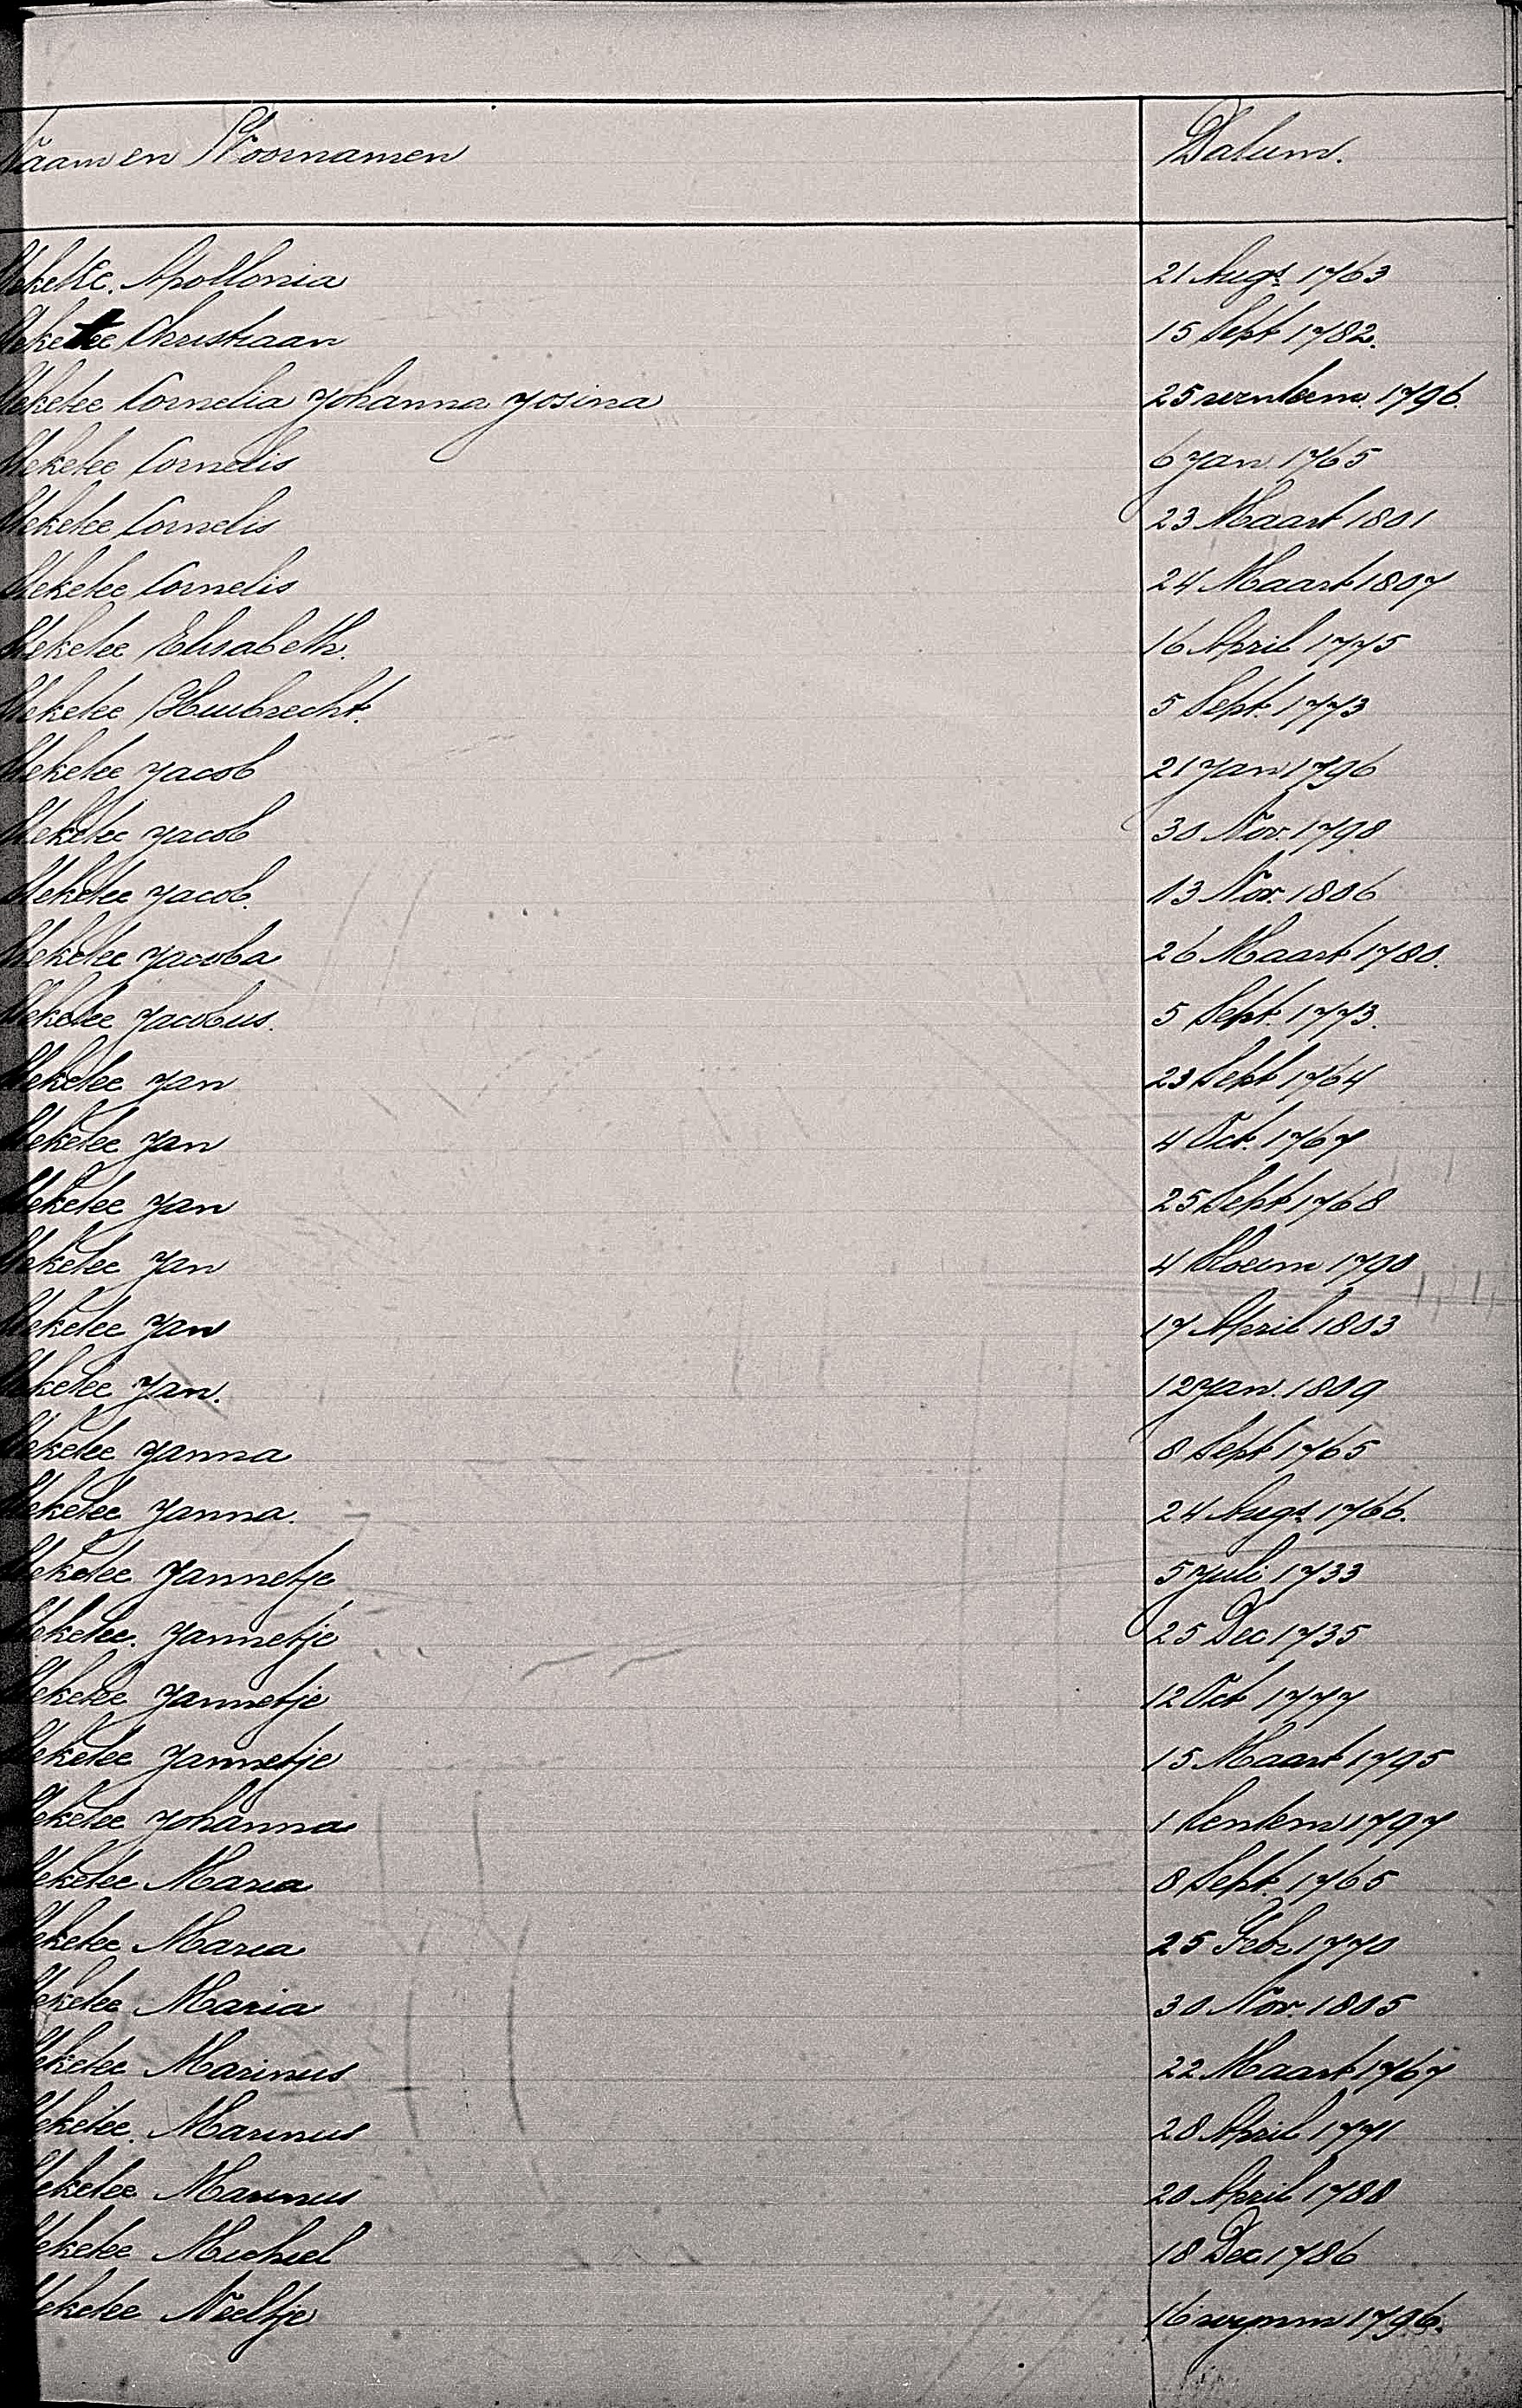 Naam en Voornamen Datum.
Mekelte. Apollonia 21 Augt 1763
Meketee Christiaan 15 Sept 1782.
Meketee Cornelia Johanna Josina 25 1796.
Meketee Cornelis 6 Jan 1765
Meketee Cornelis 23 Maart 1801
Meketee Cornelis 24 Maart 1807
Meketee Elisabeth. 16 April 1775
Meketee Huibrecht. 5 Sept. 1773
Meketee Jacob 21 Jan 1796
Meketee Jacob 30 Nov. 1798
Meketee Jacob. 13 Nov. 1806
Meketee Jacoba 26 Maart 1780.
Meketee Jacobus. 5 Sept. 1773.
Meketee Jan 23 Sept 1764
Meketee Jan 4 Oct. 1767
Meketee Jan 25 Sept 1768
Meketee Jan 4 Bloeim 1798
Meketee Jan 17 April 1803
Meketee Jan. 12 Jan. 1809
Meketee Janna 8 Sept 1765
Meketee Janna. 24 Augt 1766.
Meketee Jannetje 5 Juli 1733
Meketee. Jannetje 25 Dec 1735
Meketee Jannetje 12 Oct 1777
Meketee Jannetje 15 Maart 1795
Meketee Johanna 1 Lentem 1797
Meketee Maria 8 Sept. 1765
Meketee Maria 25 Febr 1770
Meketee Maria 30 Nov. 1805
Meketee Marinus 22 Maart 1767
Meketee. Marinus 28 April 1771
Meketee Marinus 20 April 1788
Meketee Michiel 18 Dec 1786
Meketee Neeltje 16 wynm 1796.